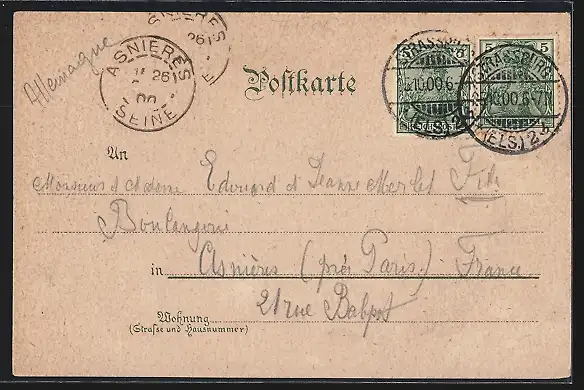 Allemagne
ASNIERES
26
00
SEINE
Postkarte
STRASSBURG
.10.00.6-7
(ELS.) 2
5 5
STRASSBURG
.10.00.6-7
(ELS.) 2
An
Monsieur et Madame Edouard et Jeanne Merlet Fils
Boulangerie
in Asnières (près Paris) France
21 rue
Wohnung
(Straße und Hausnummer)